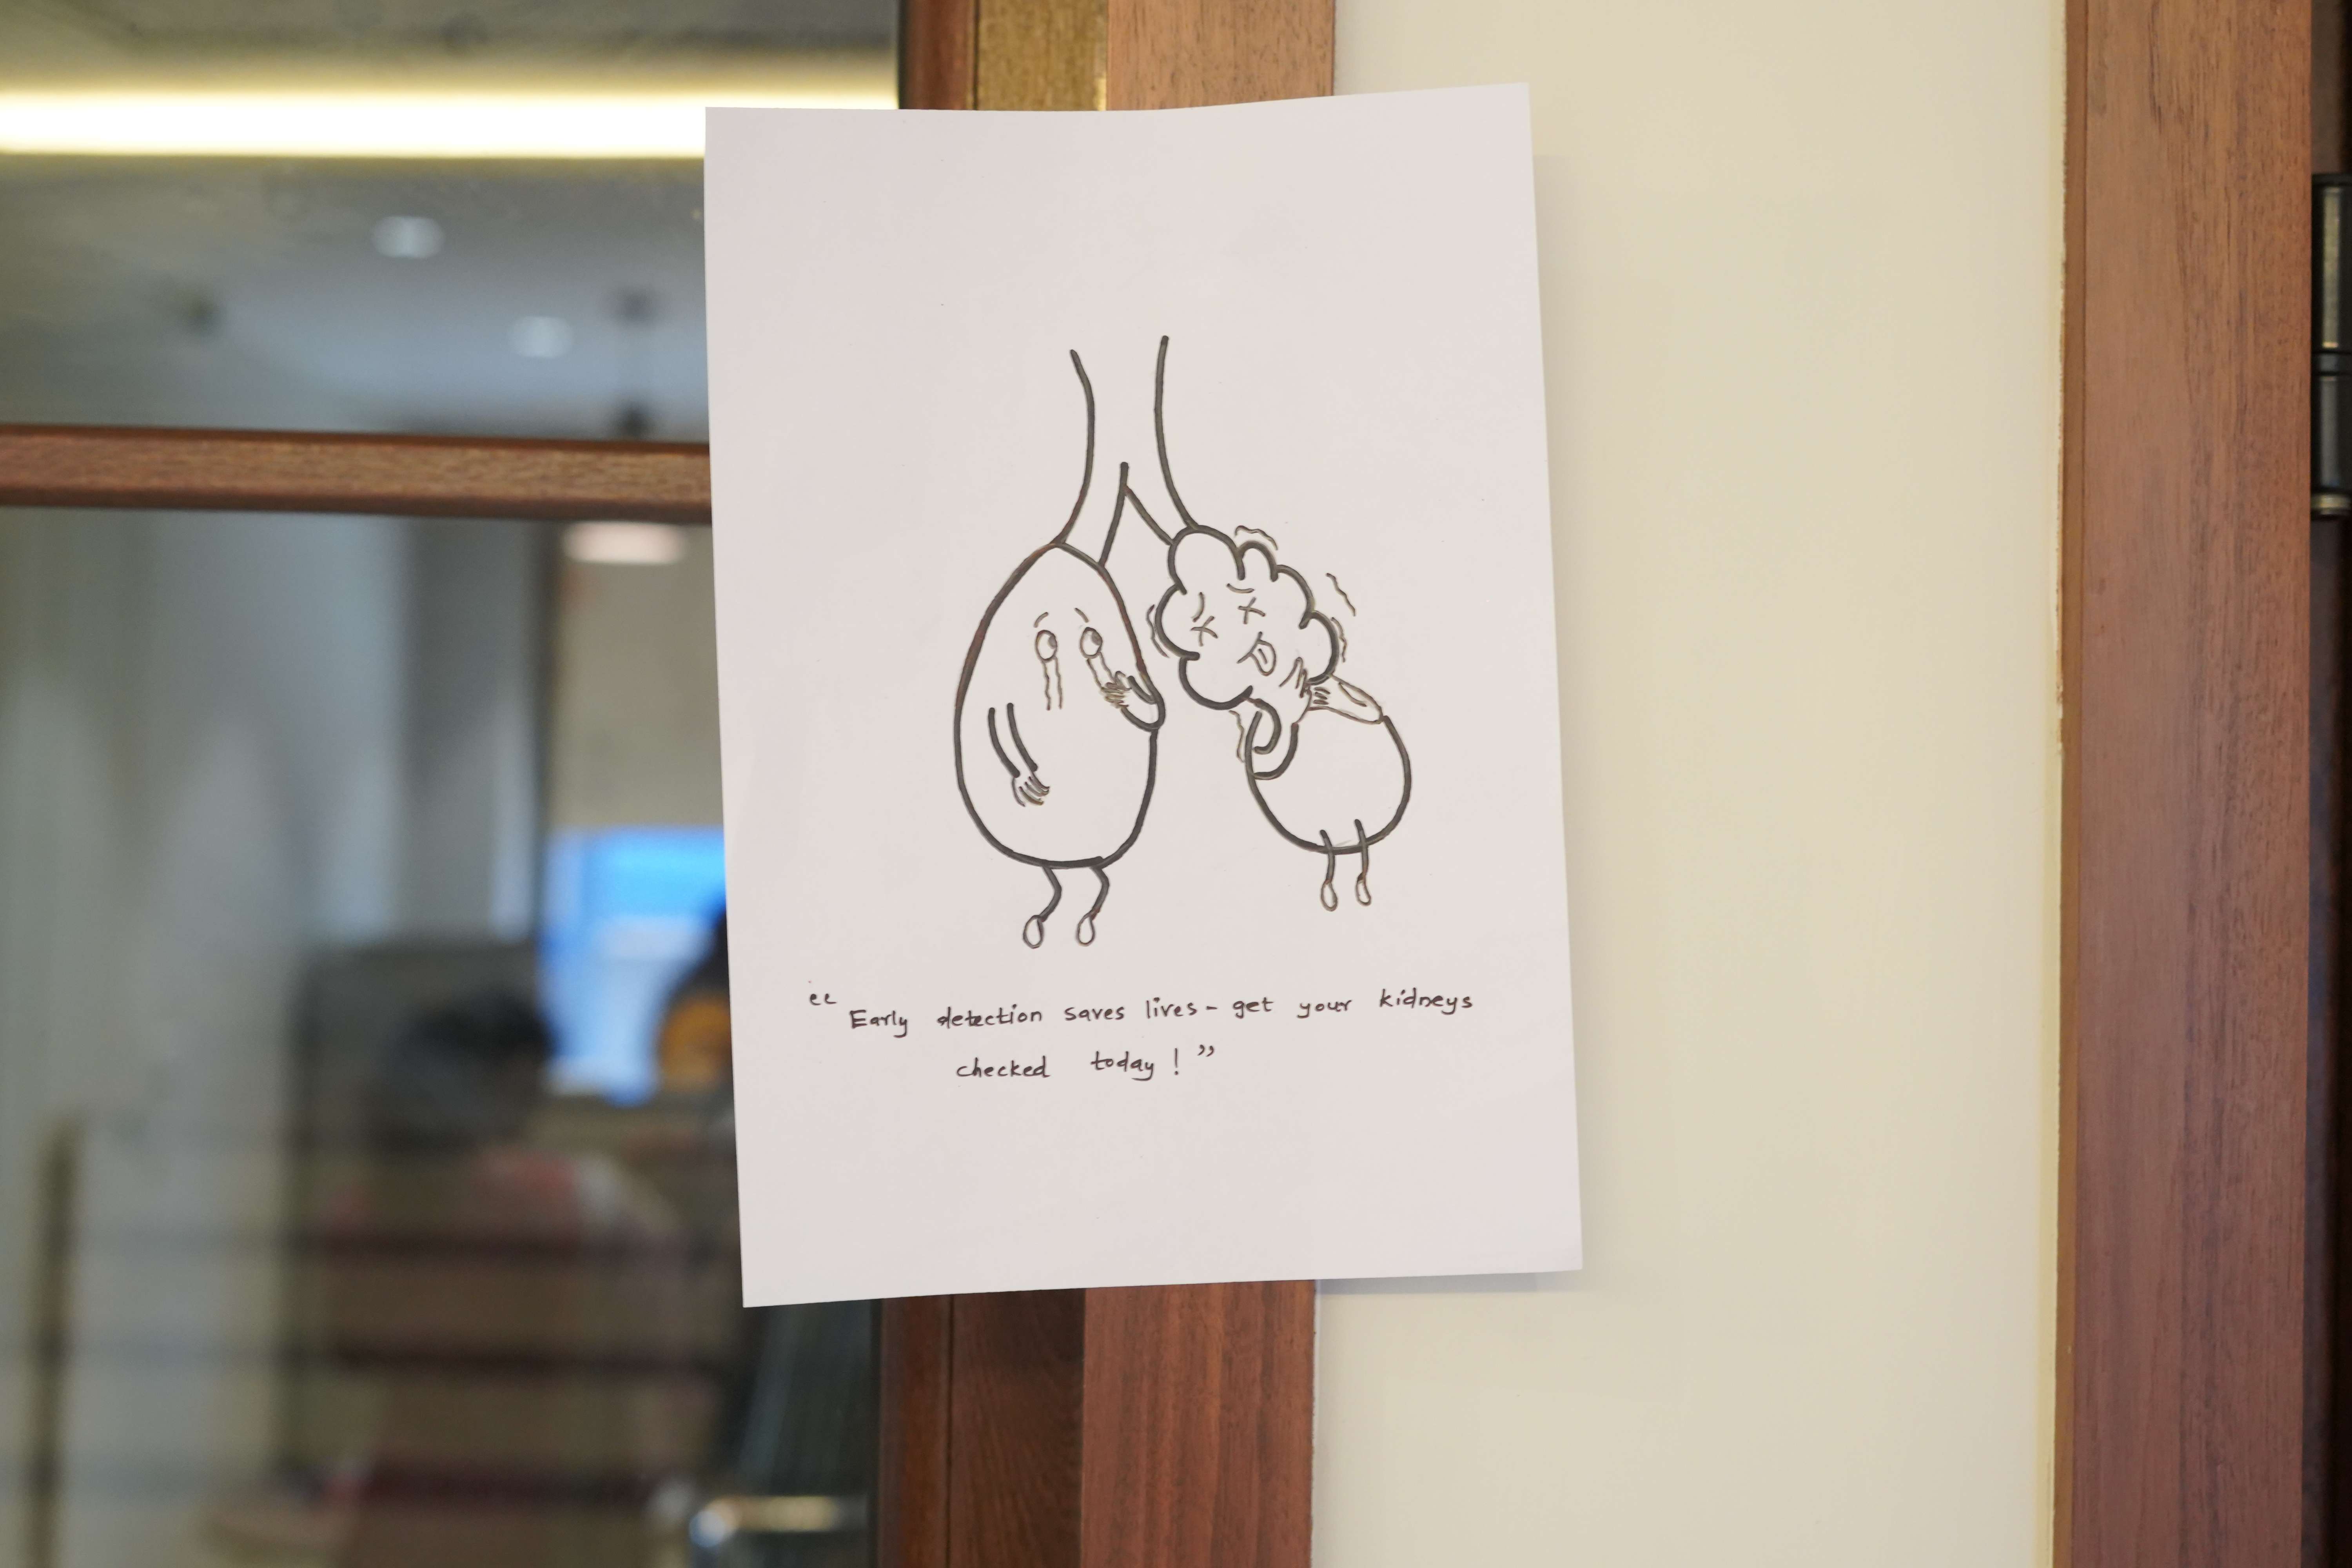 “Early detection saves lives - get your kidneys
checked today!”